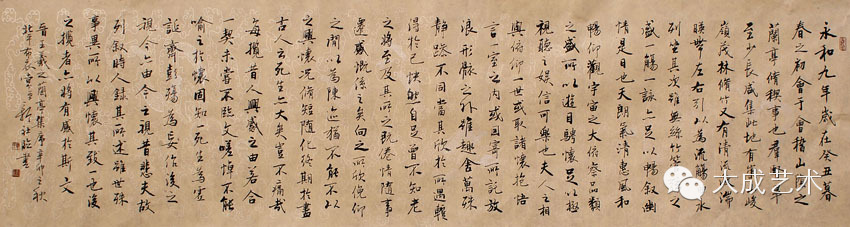 永和九年歲在癸丑暮
春之初會于會稽山陰之
蘭亭脩稧事也群賢畢
至少長咸集此地有崇山峻
嶺茂林脩竹又有清流激湍
暎帶左右引以為流觴曲水
列坐其次雖無絲竹管弦之
盛一觴一詠亦足以暢叙幽
情是日也天朗氣清惠風和
暢仰觀宇宙之大俯察品類
之盛所以遊目騁懷足以極
視聽之娛信可樂也夫人之相
與俯仰一世或取諸懷抱悟
言一室之內或因寄所託放
浪形骸之外雖趣舍萬殊
靜躁不同當其欣於所遇輒
得於己怏然自足曾不知老
之將至及其所之既倦情隨事
遷感慨係之矣向之所欣俛仰
之間以為陳迹猶不能不以
之興懷況脩短隨化終期於盡
古人云死生亦大矣豈不痛哉
每攬昔人興感之由若合
一契未嘗不臨文嗟悼不能
喻之於懷固知一死生為虛
誕齊彭殤為妄作後之
視今亦由今之視昔悲夫故
列叙時人錄其所述雖世殊
事異所以興懷其致一也後
之攬者亦將有感於斯文
晉王羲之蘭亭集序辛卯之秋
大成艺术